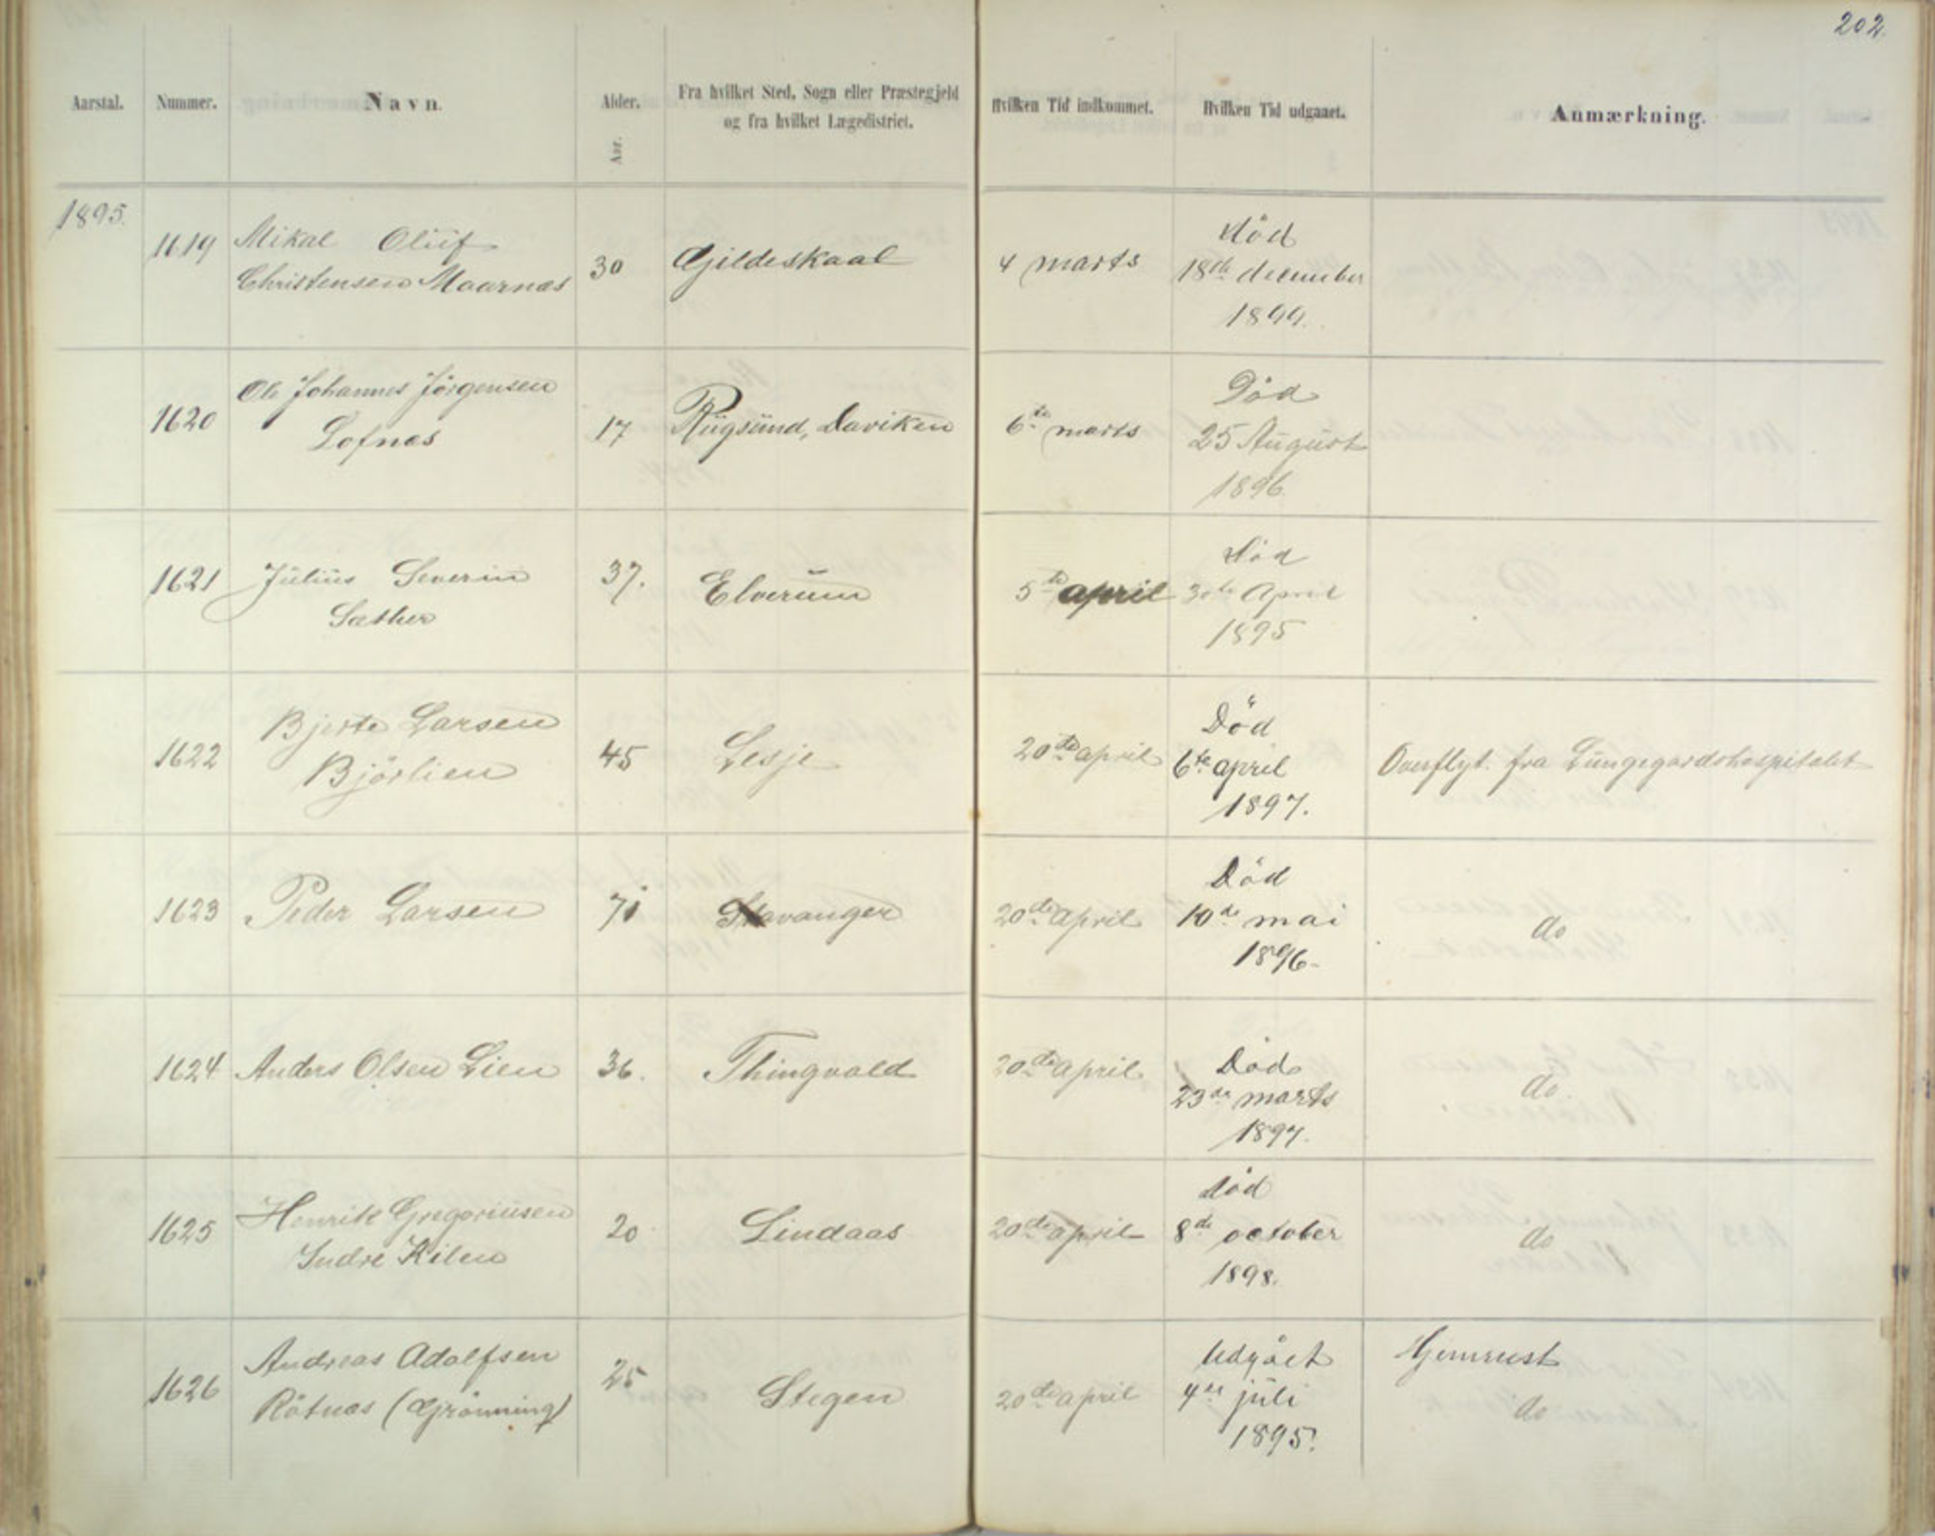 202.
Aarstal. Nummer. Navn. Alder. Aar. Fra hvilket Sted, Sogn eller Præstegjeld og fra hvilket Lægedistrict. Hvilken Tid indkommet. Hvilken Tid udgaaet. Anmærkning.
1895.
1619 Mikal Oluf
Christensen Maarnæs 30 Gjildeskaal 4 marts død
18de december
1899.
1620 Ole Johannes Jörgensen
Lofnæs 17 Rugsund, Daviken 6te marts Död
25 August
1896
1621 Julius Severin
Sæther 37. Elverum 5te april död
30te April
1895
1622 Bjerte Larsen
Björlien 45 Lesje 20de april Död
6te april
1897.
Overflyt. fra Lungegardshospitalet
1623 Peder Larsen 71 Stavanger 20de april Död
10de mai
1896.
do
1624 Anders Olsen Lien 36. Thingvold 20de april Död
23de marts
1897.
do.
1625 Henrik Gregoriusen
Indre Kilen 20 Lindaas 20de april död
8de october
1898.
do
1626 Andreas Adolfsen
Rötnæs (Grönning) 25 Stegen 20de april Udgået
4de juli
1895.
Hjemreist
do